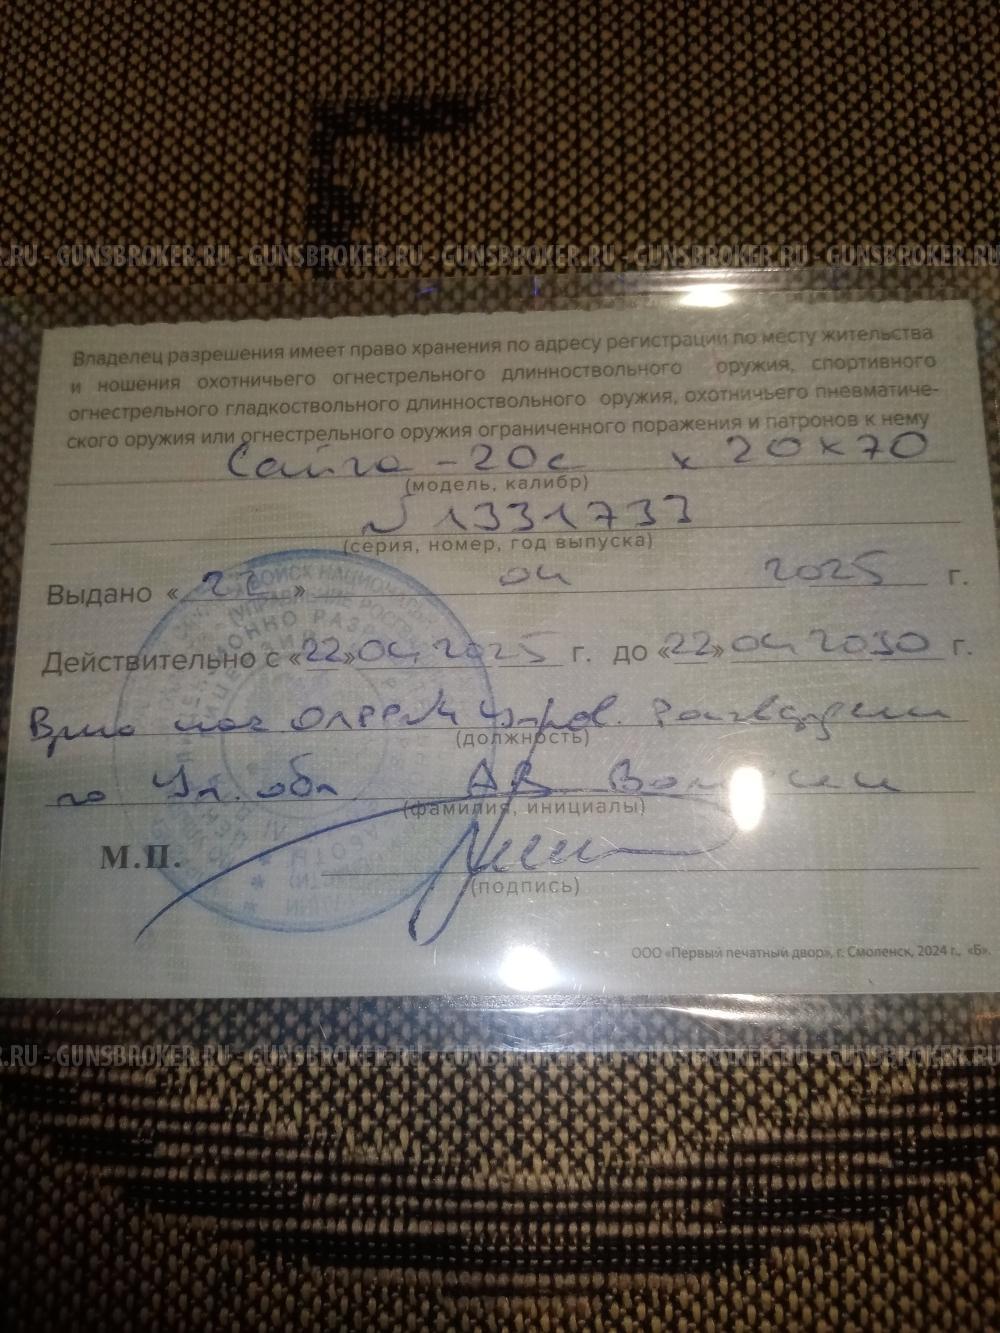 .RU - GUNSBROKER.RU - GUNSBROKER.RU - GUNSBROKER.RU - GUNSBROKER.RU
Владелец разрешения имеет право хранения по адресу регистрации по месту жительства
и ношения охотничьего огнестрельного длинноствольного оружия, спортивного
огнестрельного гладкоствольного длинноствольного оружия, охотничьего пневматиче-
ского оружия или огнестрельного оружия ограниченного поражения и патронов к нему
Сайга-20с к 20х70
(модель, калибр)
№ 1331733
(серия, номер, год выпуска)
Выдано «22» 04 2025 г.
Действительно с «22» 04 2025 г. до «22» 04 2030 г.
Врио нач ОЛРР
(должность)
по Ул. обл АВ
(фамилия, инициалы)
М.П.
(подпись)
ООО «Первый печатный двор», г. Смоленск, 2024 г., «Б».
.RU - GUNSBROKER.RU - GUNSBROKER.RU - GUNSBROKER.RU - GUNSBROKER.RU